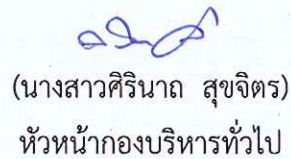 (นางสาวศิรินาถ สุขจิตร)
หัวหน้ากองบริหารทั่วไป